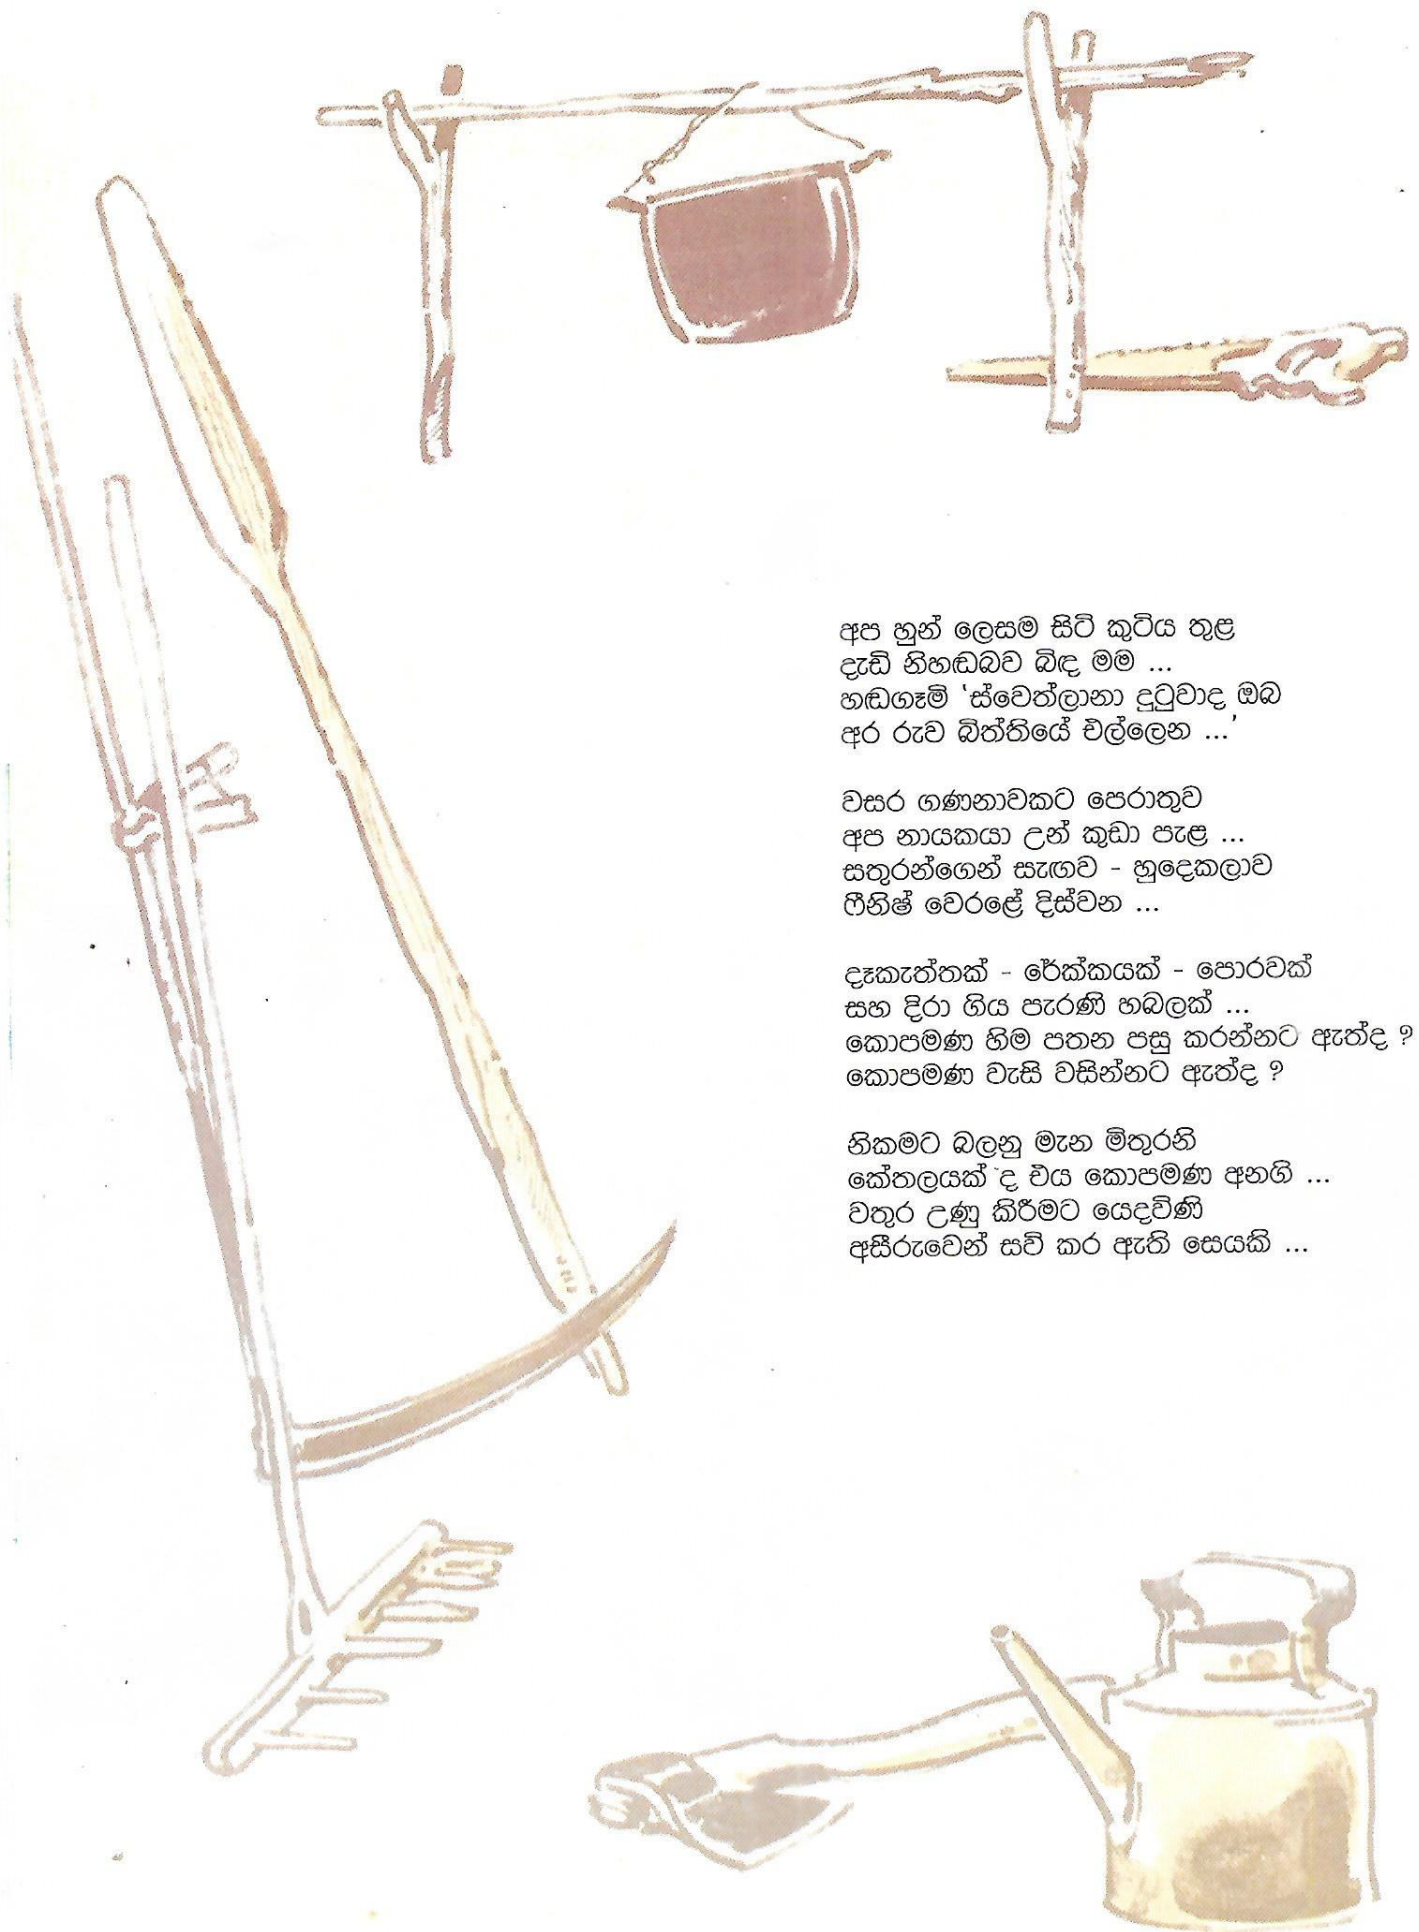 අප හුන් ලෙසම සිටි කුටිය තුළ
දැඩි නිහඬබව බිඳ මම ...
හඬගෑමි 'ස්වෙත්ලානා දුටුවාද ඔබ
අර රුව බිත්තියේ එල්ලෙන ...'

වසර ගණනාවකට පෙරාතුව
අප නායකයා උන් කුඩා පැළ ...
සතුරන්ගෙන් සැඟව - හුදෙකලාව
ෆීනිෂ් වෙරළේ දිස්වන ...

දෑකැත්තක් - රේක්කයක් - පොරවක්
සහ දිරා ගිය පැරණි හබලක් ...
කොපමණ හිම පතන පසු කරන්නට ඇත්ද ?
කොපමණ වැසි වසින්නට ඇත්ද ?

නිකමට බලනු මැන මිතුරනි
කේතලයක් ද එය කොපමණ අනගි ...
වතුර උණු කිරීමට යෙදවිණි
අසීරුවෙන් සවි කර ඇති සෙයකි ...